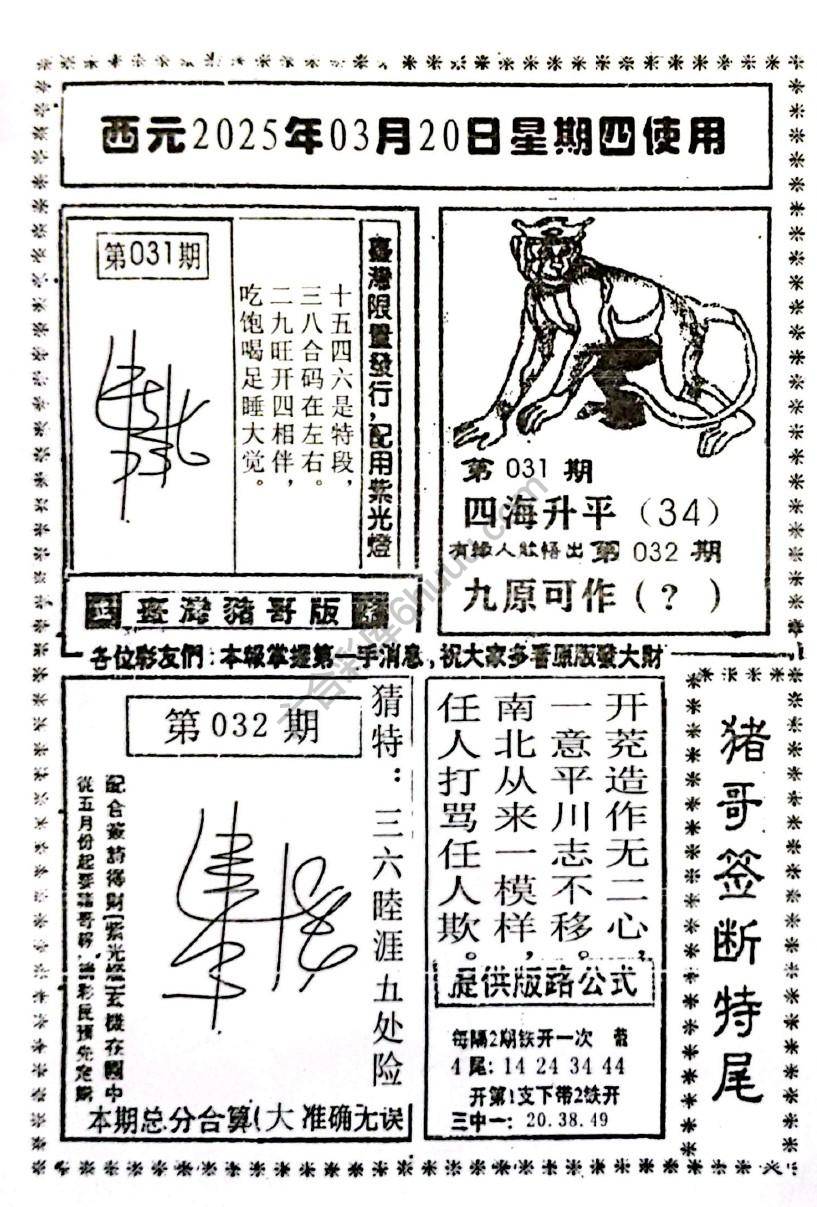 西元2025年03月20日星期四使用
第031期
十五四六是特段，
三八合码在左右。
二九旺开四相伴，
吃饱喝足睡大觉。
臺灣限量發行，配用紫光燈
臺灣豬哥版
第 031 期
四海升平（34）
有緣人能悟出 第 032 期
九原可作（？）
各位彩友們：本報掌握第一手消息，祝大家多看原版發大財
第032期
猜特：三六睦涯五处险
配合簽詩得財(紫光燈)玄機在圖中
從五月份起要豬哥報，請彩民預先定購
本期总分合算(大 准确无误
开茺造作无二心，
一意平川志不移。
南北从来一模样，
任人打骂任人欺。
提供版路公式
每隔2期铁开一次
4尾：14 24 34 44
开第1支下带2铁开
三中一：20.38.49
猪哥签断特尾
六合彩库6huuu.com